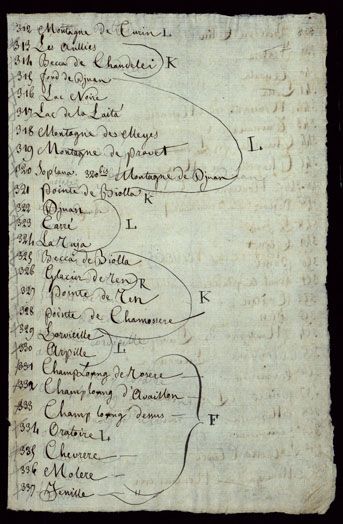 312 Montagne de Curin L
313 Les Aulliés
314 Becca de Chandelei K
315 fond de Djuan
316 Lac Noire
317 Lac de la Laità
318 Montagne des Meyes L
319 Montagne de pravet
320 Soplana 320bis Montagne de Djuan
321 pointe de Biolla K
322 Djuan
323 Carré L
324 La Ruja
325 Beccas de Biolla
326 Glacier de Ren R
327 Pointe de Ren K
328 pointe de Chamossere
329 Lorvieille
330 Arpille L
331 Champlong de Rosere
332 Champlong d'Availlon
333 Champ long dessus F
334 Oratoire L
335 Chevrere
336 Molere
337 Jenille